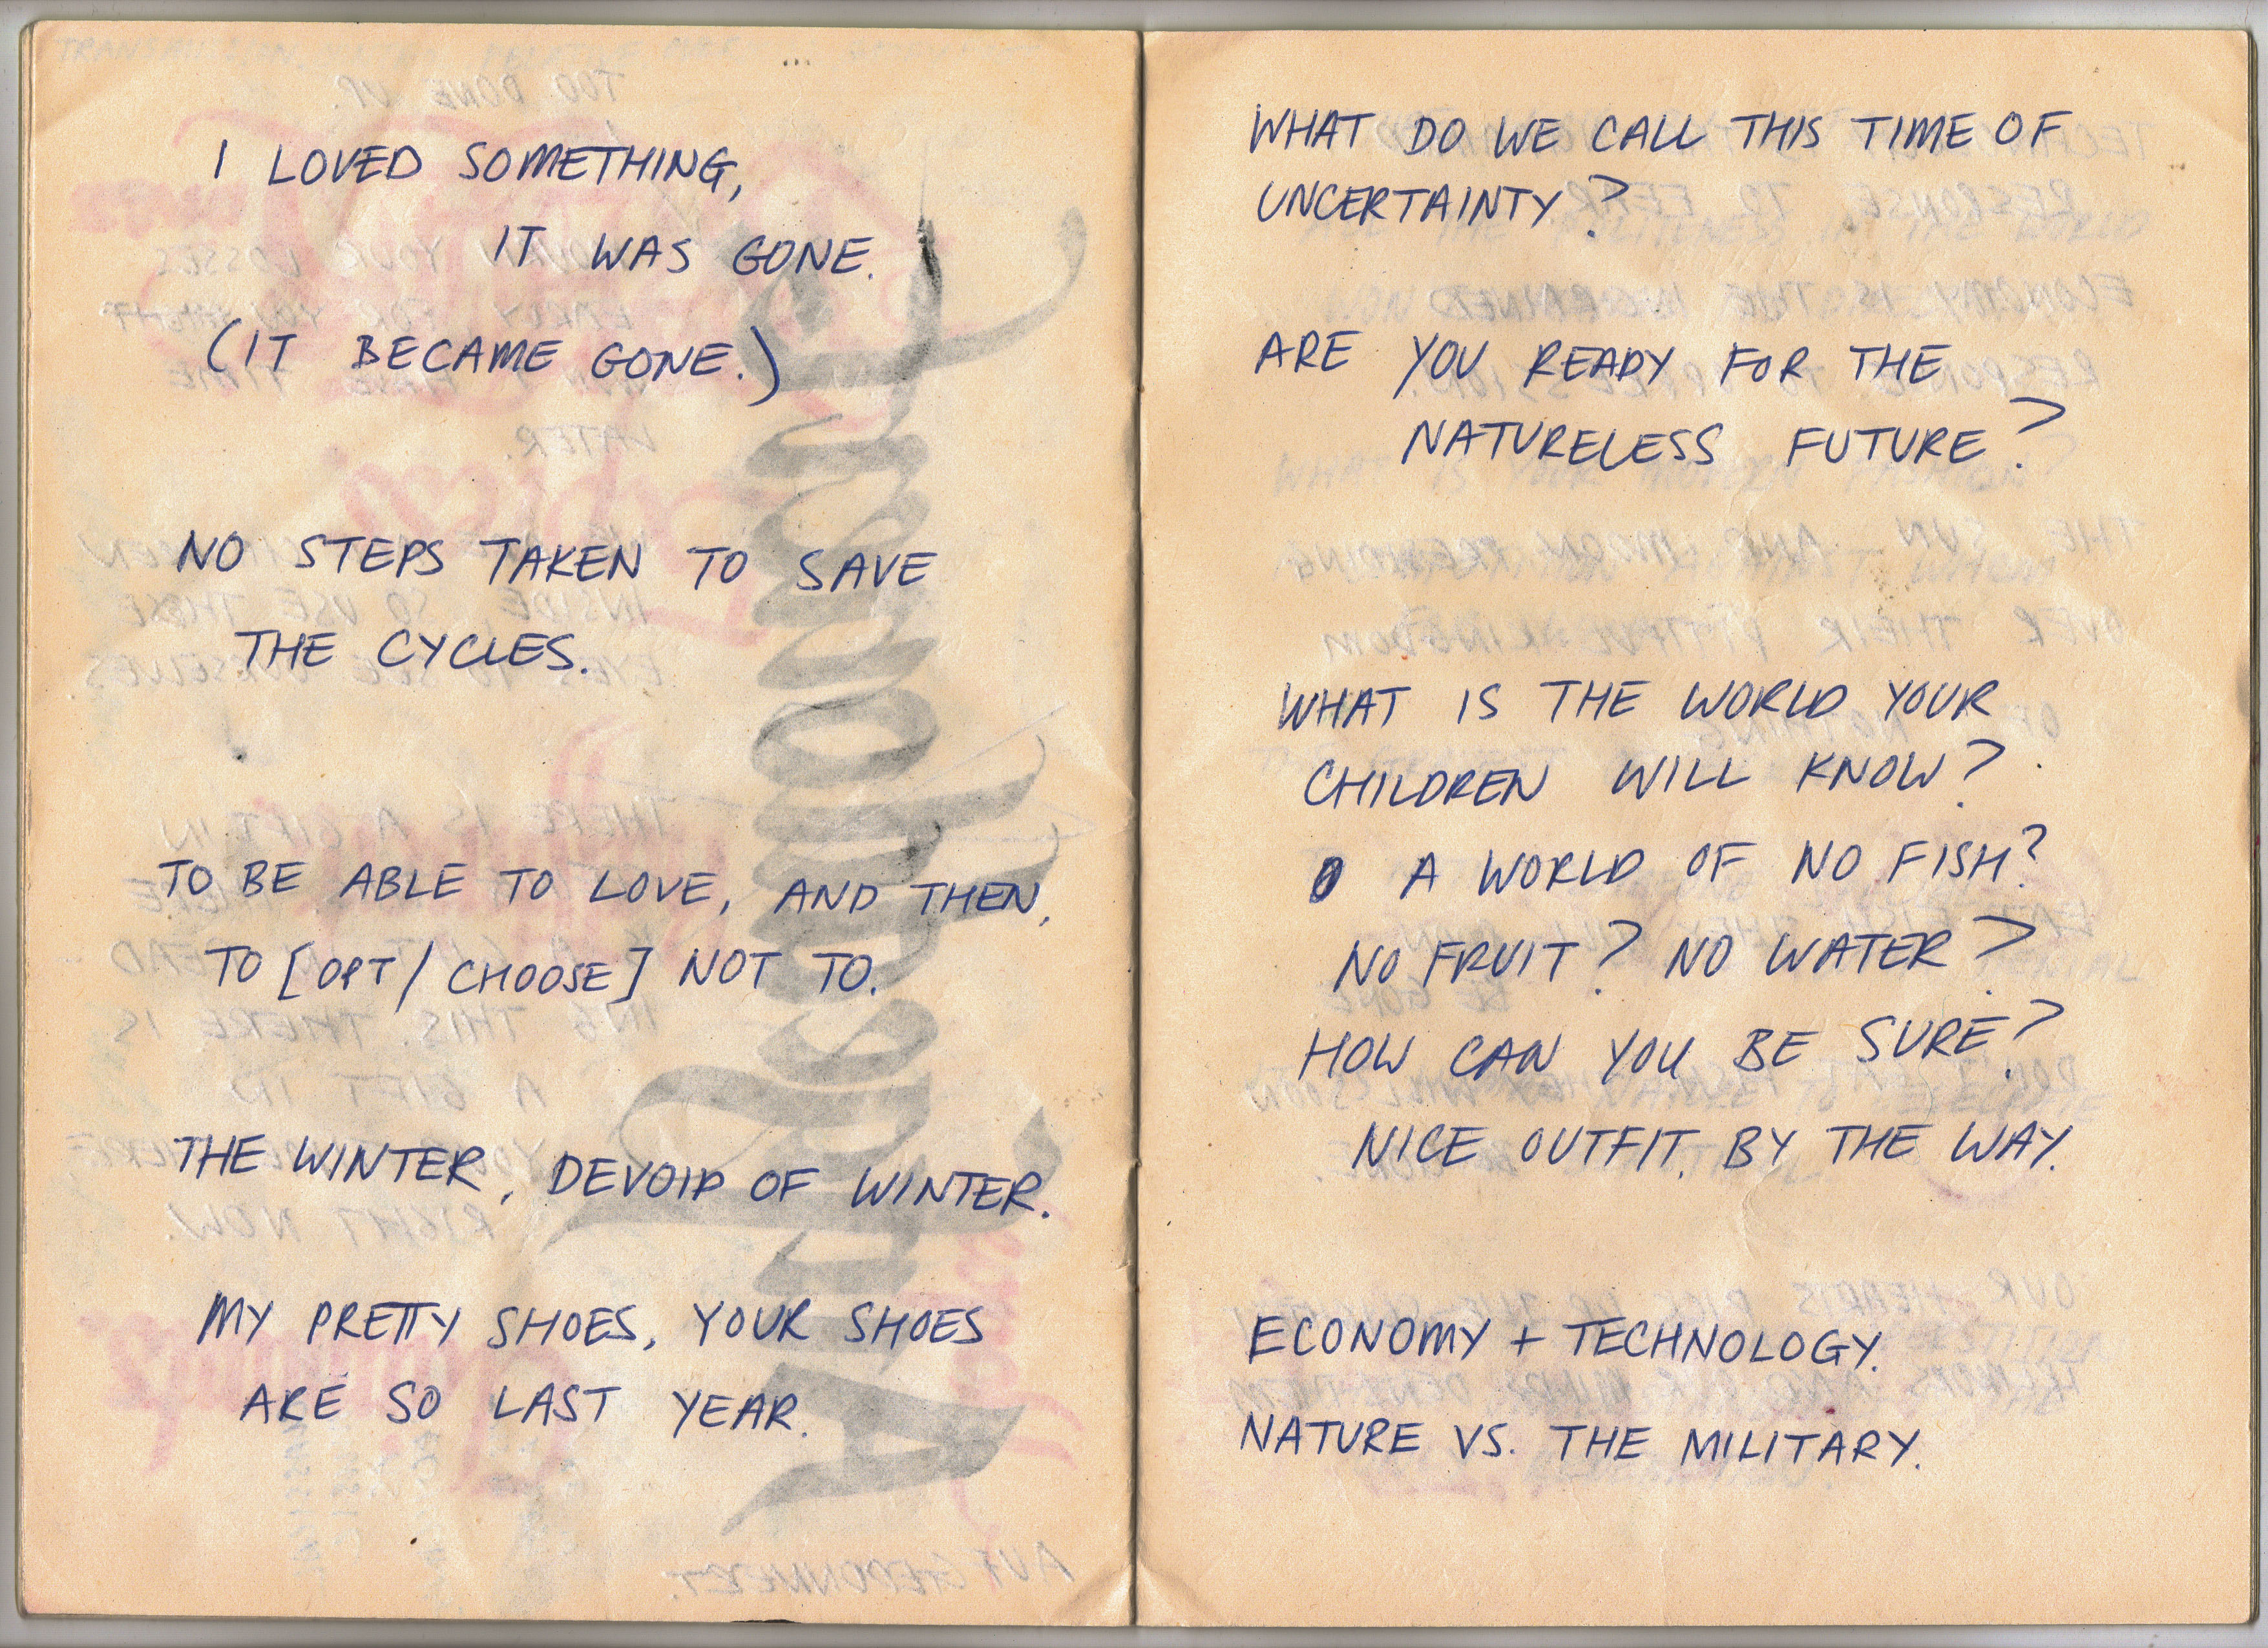 I LOVED SOMETHING,
IT WAS GONE.
(IT BECAME GONE.)
NO STEPS TAKEN TO SAVE
THE CYCLES.
TO BE ABLE TO LOVE, AND THEN,
TO [OPT/CHOOSE] NOT TO.
THE WINTER, DEVOID OF WINTER.
MY PRETTY SHOES, YOUR SHOES
ARE SO LAST YEAR.
WHAT DO WE CALL THIS TIME OF
UNCERTAINTY?
ARE YOU READY FOR THE
NATURELESS FUTURE?
WHAT IS THE WORLD YOUR
CHILDREN WILL KNOW?
A WORLD OF NO FISH?
NO FRUIT? NO WATER?
HOW CAN YOU BE SURE?
NICE OUTFIT, BY THE WAY.
ECONOMY + TECHNOLOGY.
NATURE VS. THE MILITARY.